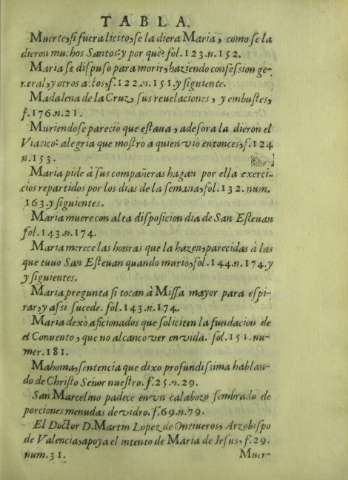 TABLA.
Muerte, si fuera licito, se la diera Maria, como se la
dieron muchos Santos: y por què fol. 123. n. 152.
Maria se dispuso para morir, haziendo confession ge-
neral, y otros actos, f. 122. n. 151. y siguiente.
Madalena de la Cruz, sus reuelaciones, y embustes,
f. 176. n. 21.
Muriendose parecio que estaua, a desora la dieron el
Viatico: alegria que mostro a quien viò entonces, f. 124
n. 153.
Maria pide à sus compañeras hagan por ella exerci-
cios repartidos por los dias de la semana, fol. 132. num.
163. y siguientes.
Maria muere con alta disposicion dia de San Esteuan
fol. 143. n. 174.
Maria merece las honras que la hazen, parecidas à las
que tuuo San Esteuan quando murio, fol. 144. n. 174. y
y siguientes.
Maria pregunta si tocan à Missa mayor para espi-
rar, y assi sucede. fol. 143. n. 174.
Maria dexò aficionados que soliciten la fundacion de
el Conuento, que no alcanco ver en vida. fol. 151. nu-
mer. 181.
Mahoma, sentencia que dixo profundissima hablan-
do de Christo Señor nuestro. f. 25. n. 29.
San Marcelmo padece en vn calaboço sembrado de
porciones menudas de vidro. f. 69. n. 79.
El Doctor D. Martin Lopez de Ontiueros, Arzobispo
de Valencia, apoya el intento de Maria de Jesus, f. 29.
num. 31.
Muer-